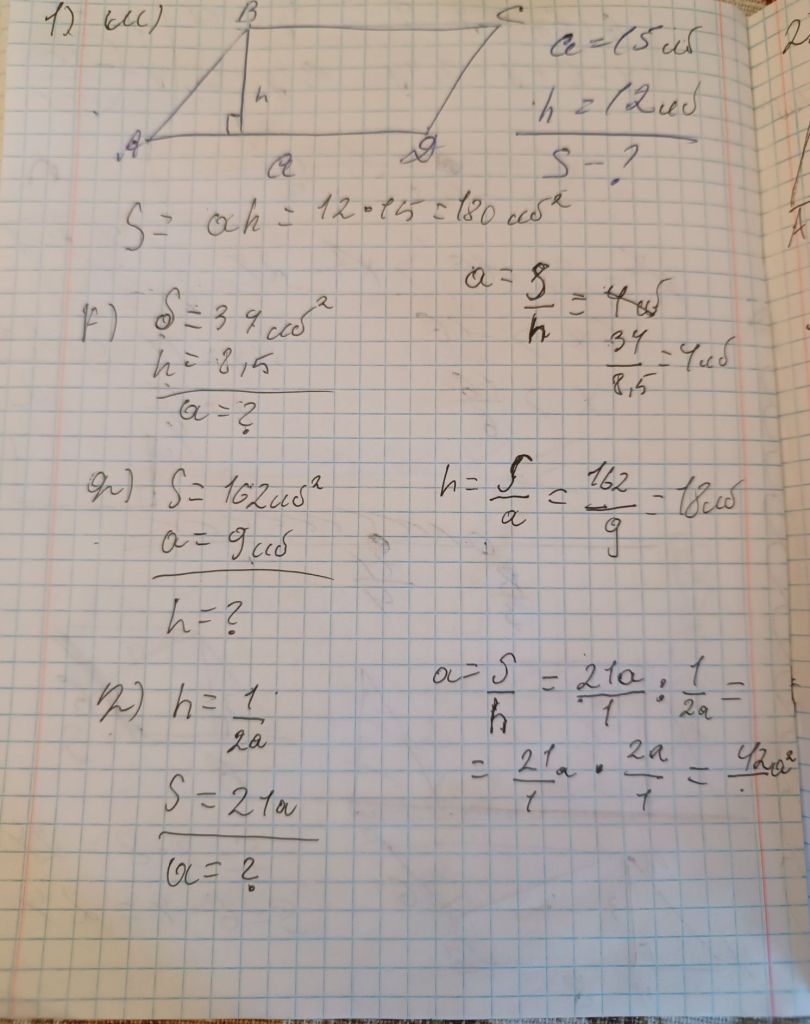 1) ա)
B C
h
A a D
a = 15 սմ
h = 12 սմ
S - ?
S = ah = 12 · 15 = 180 սմ²
բ) S = 34 սմ²
h = 8,5
a = ?
a = S/h = 4 սմ
34/8,5 = 4 սմ
գ) S = 162 սմ²
a = 9 սմ
h = ?
h = S/a = 162/9 = 18 սմ
դ) h = 1/2a
S = 21a
a = ?
a = S/h = 21a/1 : 1/2a =
= 21/1 a · 2a/1 = 42a²
2
A